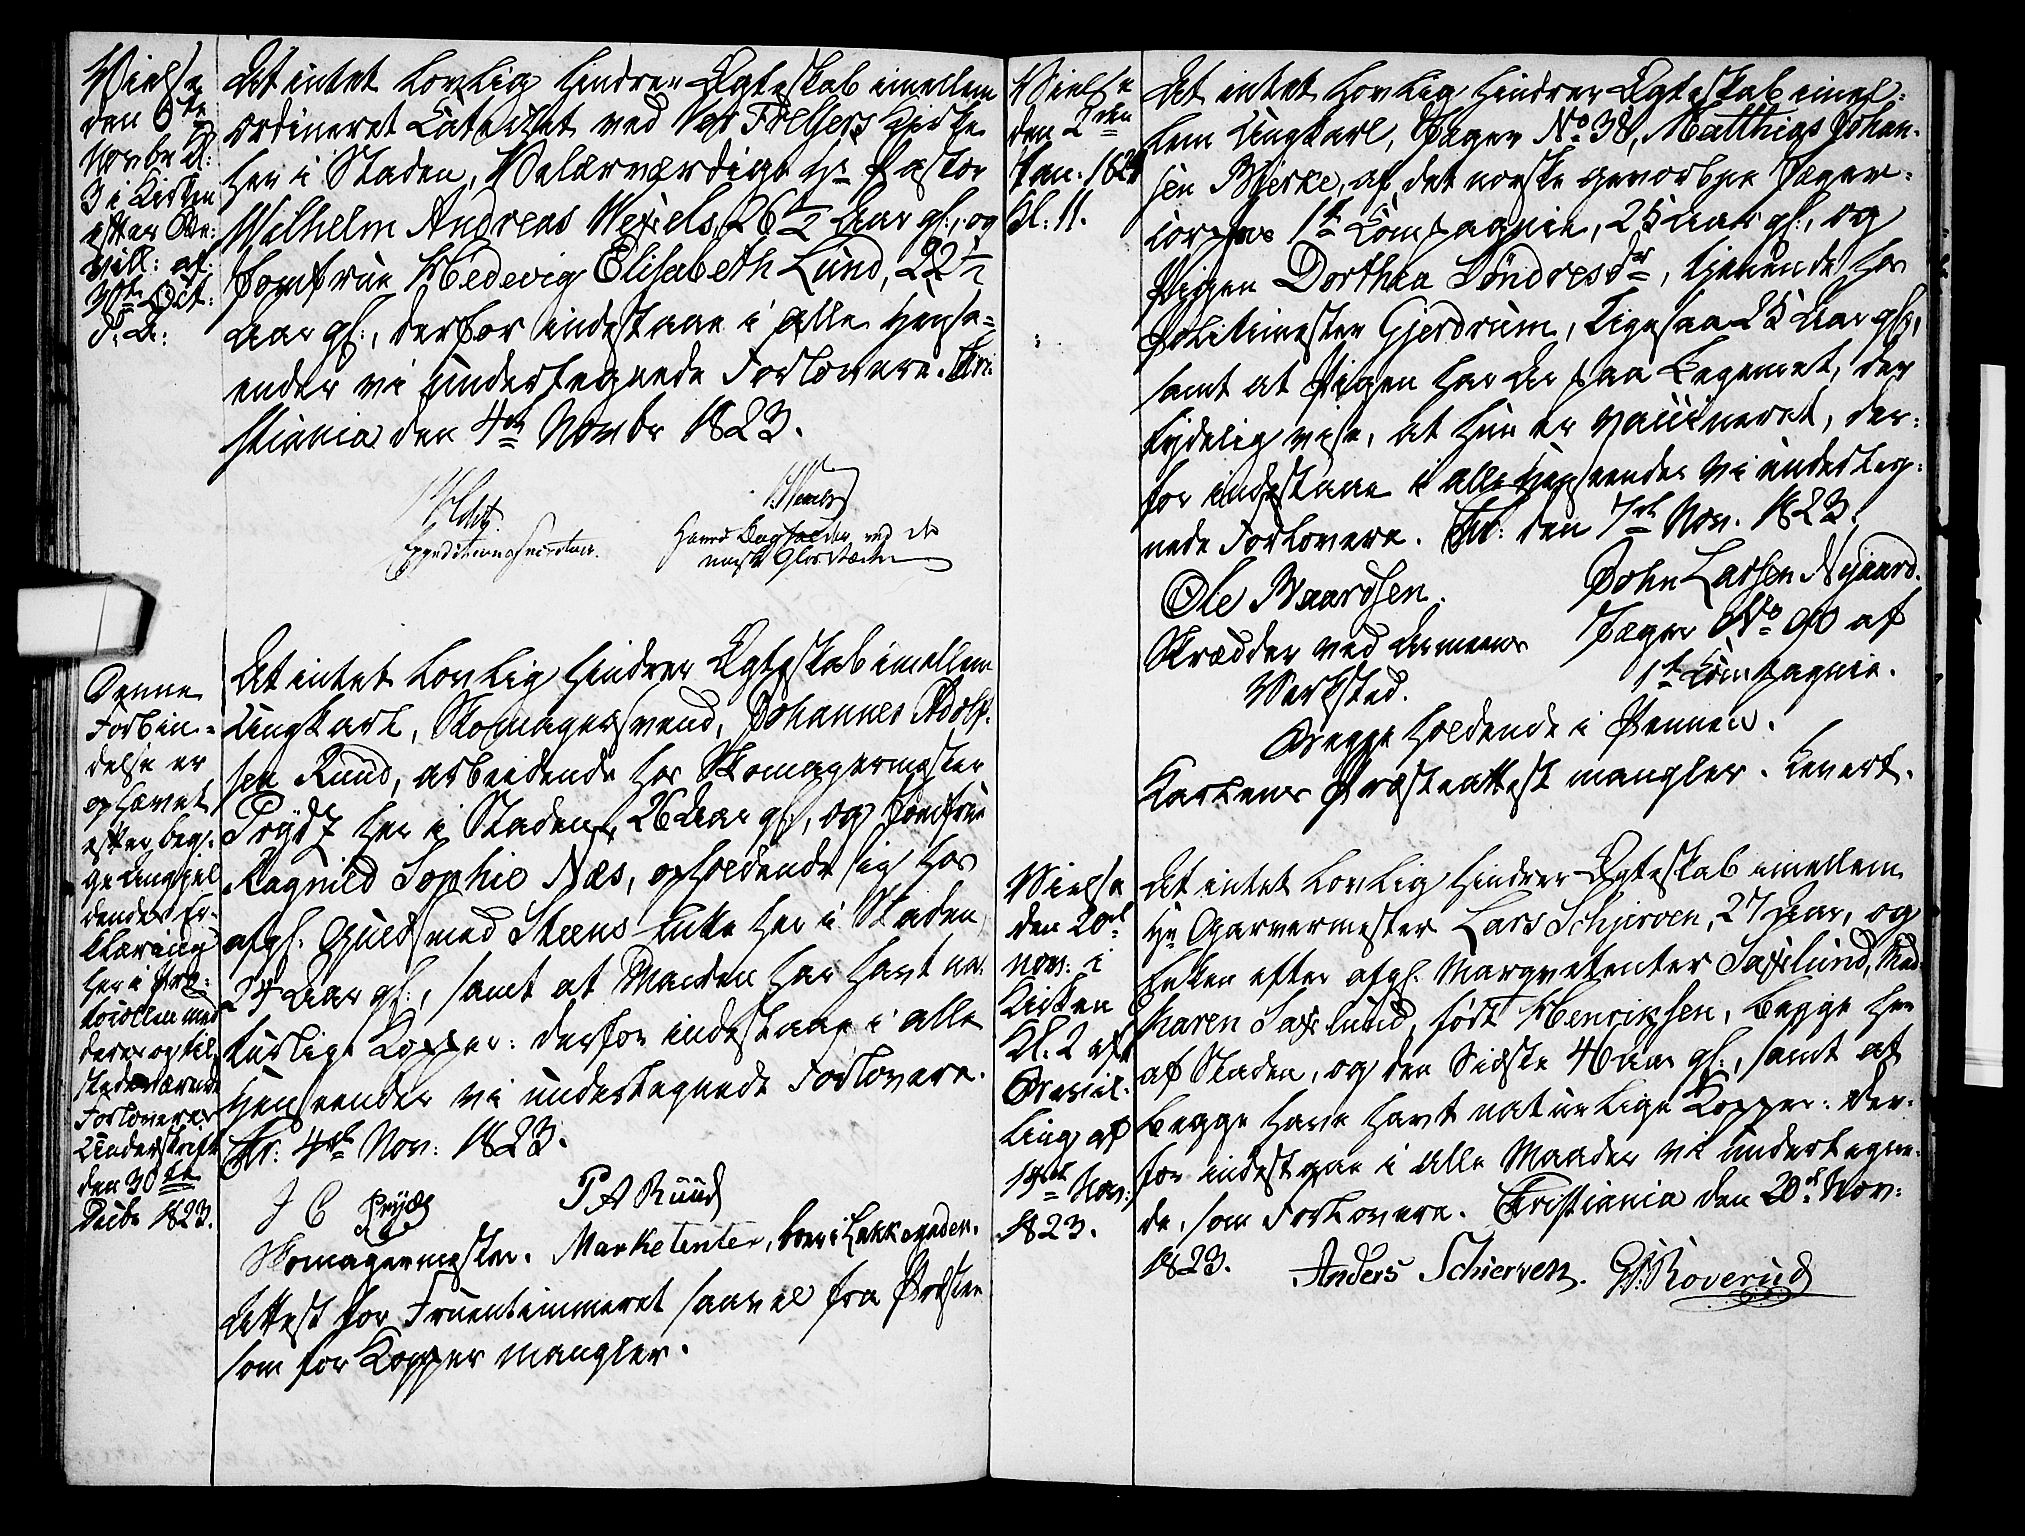 Vielse
den 6te
Novbr Kl:
3 i Kirken
efter Be-
vill: af
31te Oct:
d. A:
At intet lovlig hindrer Ægteskab imellem
ordineret Catechet ved Vor Frelsers Kirke
her i Staden, Velærværdige Hr Pastor
Wilhelm Andreas Wexels, 26 1/2 Aar gl:, og
Jomfrue Hedevig Elisabeth Lund, 22 1/2
Aar gl:, derfor indestaae i alle Hense-
ender vi undertegnede Forlovere. Chri-
stiania den 4de Novbr 1823.
Expeditionssecretair.
Denne
Forbin-
delse er
ophævet
efter beg-
ge
Er-
klæring
her i Pro-
tocollen med
deres og til-
stedeværende
Forloveres
Underskrift
den 30te
Decbr 1823.
At intet lovlig hindrer Ægteskab imellem
Ungkarl, Skomagersvend, Johannes Adolf-
sen Ruud, arbeidende hos Skomagermester
Prydz her i Staden, 26 Aar gl:, og Jomfrue
Ragnild Sophie Næs, opholdende sig hos
afgl. Guldsmed Steens Enke her i Staden
Aar gl:, samt at Manden har havt na-
turlige Kopper: derfor indestaae i alle
Henseender vi undertegnede Forlovere.
Chr: 4de Nov: 1823.
J C Prydz
Skomagermester.
P A Ruud
Marketenter, boer i Lakkegaden.
Attest for Fruentimmeret saavel fra Præsten
som for Kopper mangler.
Vielse
den 2den
Jan. 1824
Kl: 11.
At intet lovlig hindrer Ægteskab imel-
lem Ungkarl, Jæger No 38, Matthias Johan-
sen Bjerke, af det norske gevorbne Jæger-
corpses 1te Compagnie, 25 Aar gl:, og
Pigen Dorthea Søndresdr, tjenende hos
Politimester Gjerdrum, ligesaa 25 Aar gl:,
samt at Pigen har Ar paa Legemet, der
tydelig vise, at hun er vaccineret, der-
for indestaae i alle Henseender vi underteg-
nede Forlovere. Chr: den 7de Nov. 1823.
Ole Baardsen.
Skrædder ved Armeens
Værksted.
John Larsen Nygaard.
Jæger No 90 af
1te Compagnie.
Begge holdende i Pennen.
Karlens Præsteattest mangler. Levert.
Vielse
den 20de
nov. i
Kirken
Kl. 2 eft
Bevil-
ling af
19de Nov:
1823.
At intet lovlig hindrer Ægteskab imellem
Hr Garvermester Lars Schjerven, 27 Aar, og
Enken efter afgl. Marqvetenter Saxlund, Mad:
Karen Saxlund, født Henriksen, begge her
af Staden, og den Sidste 40 Aar gl:, samt at
begge have havt naturlige Kopper: der-
for indestaae i alle Maader vi undertegne-
de, som Forlovere. Christiania den 20de Nov:
1823.
Anders Schierven.
Roverud